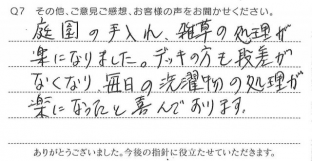 Q7 その他、ご意見ご感想、お客様の声をお聞かせください。
庭園の手入れ、雑草の処理が
楽になりました。デッキの方も段差が
なくなり、毎日の洗濯物の処理が
楽になったと喜んでおります。
ありがとうございました。今後の指針に役立たせていただきます。